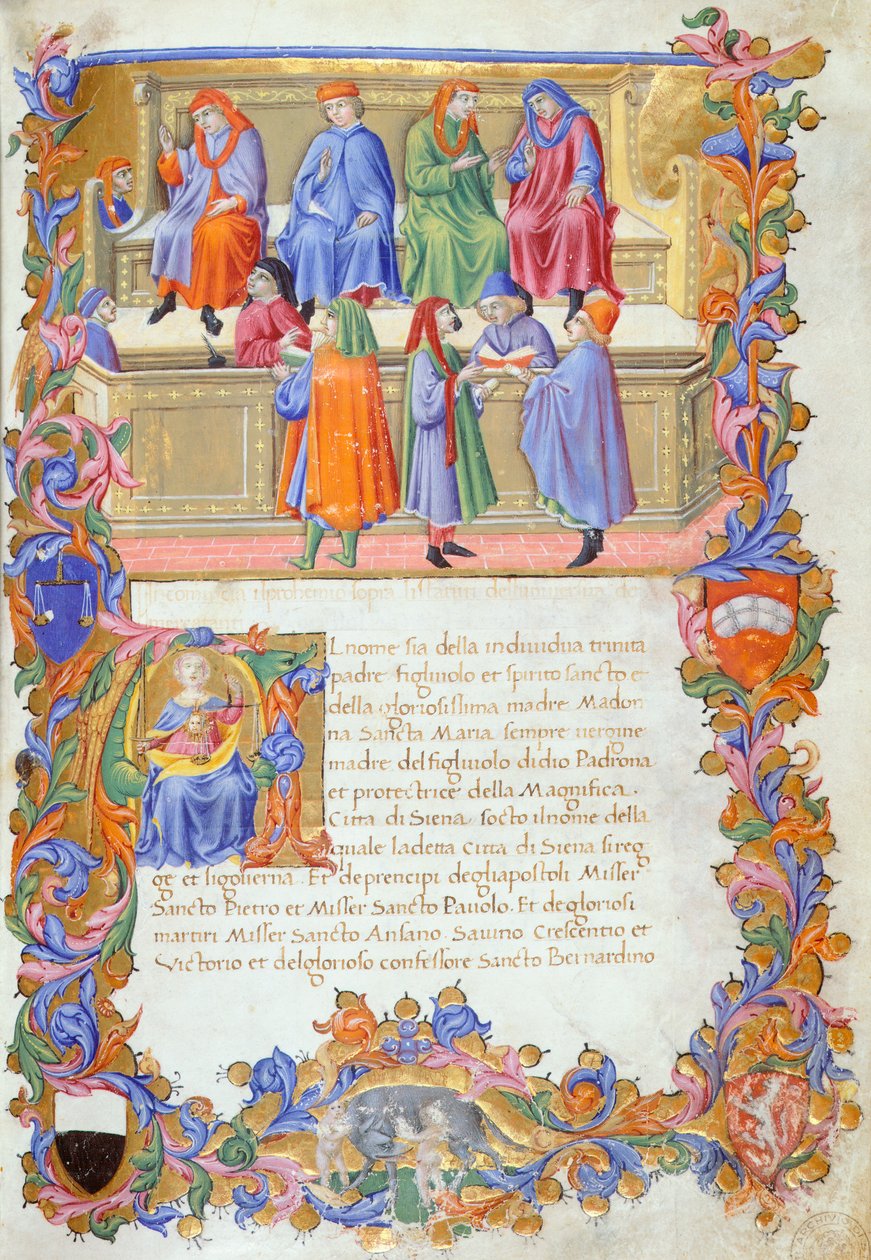 Incomincia il prohemio sopra li statuti dell università de
mercatanti
Al nome sia della individua trinita
padre figliuolo et spirito sancto et
della gloriosissima madre Madon
na Sancta Maria sempre vergine
madre del figliuolo didio Padrona
et protectrice della Magnifica.
Citta di Siena, socto ilnome della
quale ladetta Citta di Siena sireg
ge et sigoverna. Et deprencipi degliapostoli Misser
Sancto Pietro et Misser Sancto Pavolo. Et degloriosi
martiri Misser Sancto Ansano. Savino Crescentio et
Victorio et delglorioso confessore Sancto Bernardino
ARCHIVIO DI